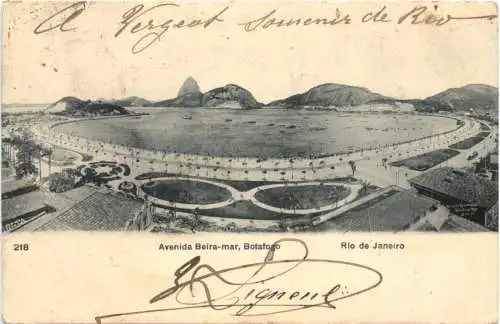 A Vergeat souvenir de Rio
218 Avenida Beira-mar, Botafogo Rio de Janeiro